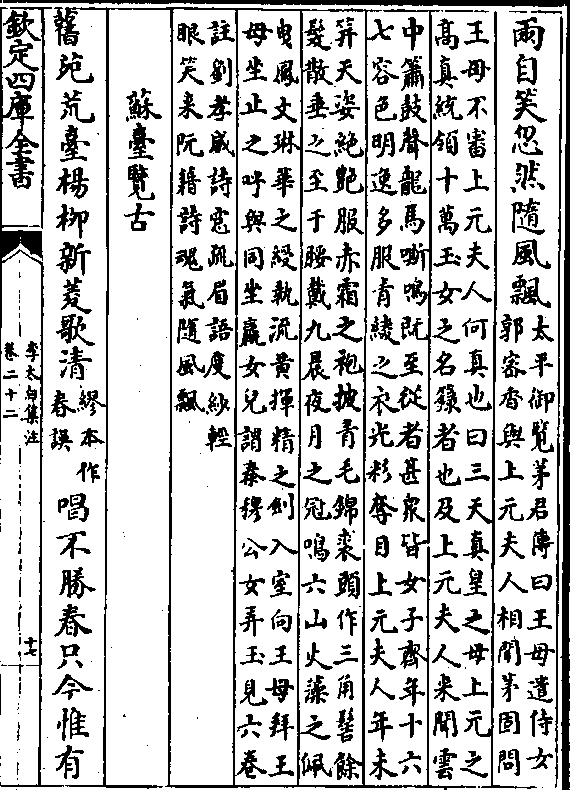 兩自笑忽然隨風飄太平御覽茅君傳曰王母遣侍女
郭密香與上元夫人相聞茅固問
王母不審上元夫人何真也曰三天真皇之母上元之
高真統領十萬玉女之名籙者也及上元夫人來聞雲
中簫鼓聲龍馬嘶鳴既至從者甚衆皆女子齊年十六
七容色明逸多服青綾之衣光彩奪目上元夫人年未
笄天姿絶艶服赤霜之袍披青毛錦裘頭作三角髻餘
髮散垂之至于腰戴九晨夜月之冠鳴六山火藻之佩
曳鳳文琳華之綬執流黄揮精之劍入室向王母拜王
母坐止之呼與同坐嬴女兒謂秦穆公女弄玉見六卷
註劉孝威詩窓疏眉語度紗輕
眼笑来阮籍詩魂氣隨風飄
蘇臺覽古
舊苑荒臺楊柳新菱歌清繆本作
春誤唱不勝春只今惟有
欽定四庫全書
李太白集注
卷二十二
十七